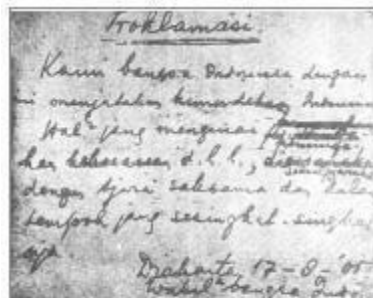 Proklamasi
Kami bangsa Indonesia dengan
ini menjatakan kemerdekaan Indonesia
Hal² jang mengenai
kekoeasaan d.l.l., diselenggarakan
dengan tjara saksama dan dalam
tempoh jang sesingkat-singkat
nja
Djakarta 17-8-'05
Wakil² bangsa Indo